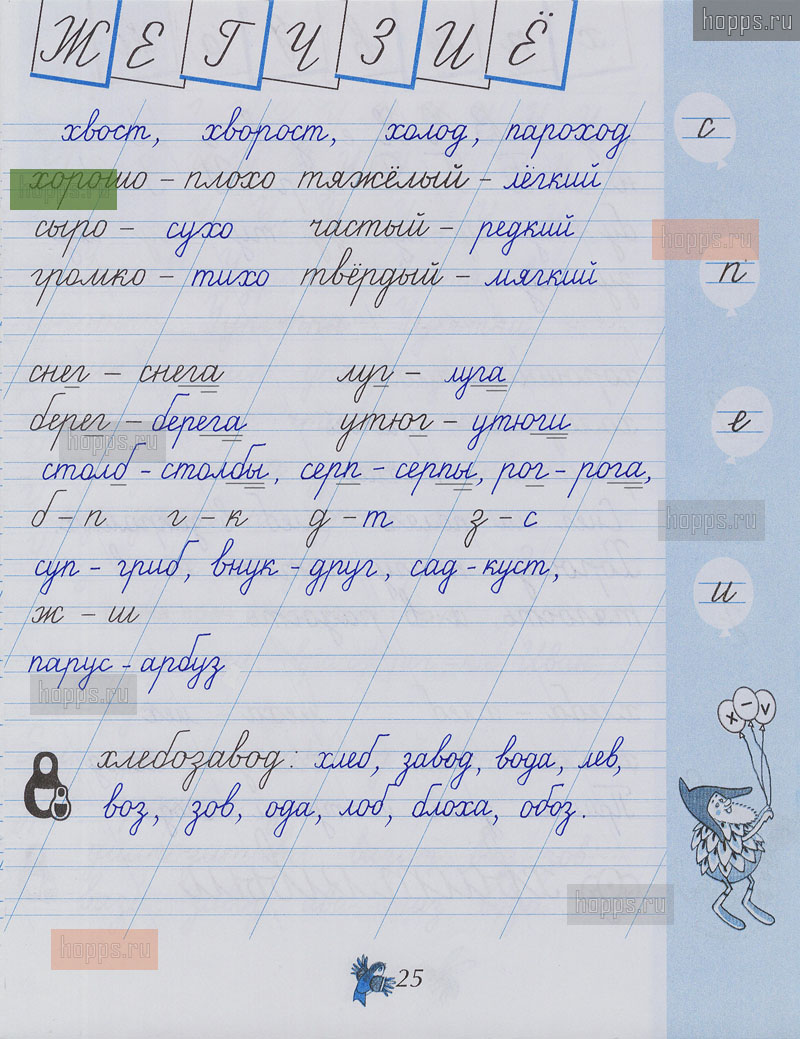 Ж Е Г Ч З И Ё
hopps.ru
хвост, хворост, холод, пароход
с
хорошо – плохо тяжёлый – лёгкий
hopps.ru
сыро – сухо частый – редкий
hopps.ru
громко – тихо твёрдый – мягкий
п
снег – снега луг – луга
берег – берега утюг – утюги
е
hopps.ru
столб – столбы, серп – серпы, рог – рога,
б – п г – к д – т з – с
hopps.ru
суп – гриб, внук – друг, сад – куст,
и
ж – ш
парус – арбуз
hopps.ru
х – v
хлебозавод: хлеб, завод, вода, лев,
воз, зов, ода, лоб, блоха, обоз.
hopps.ru
hopps.ru
25